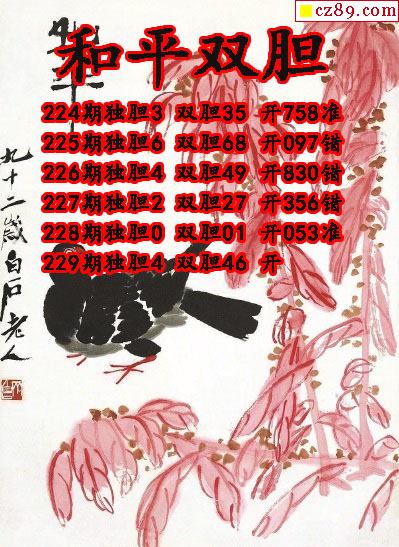 cz89.com
和平双胆
224期独胆3 双胆35 开758准
225期独胆6 双胆68 开097错
226期独胆4 双胆49 开830错
227期独胆2 双胆27 开356错
228期独胆0 双胆01 开053准
229期独胆4 双胆46 开
和平
九十二岁白石老人